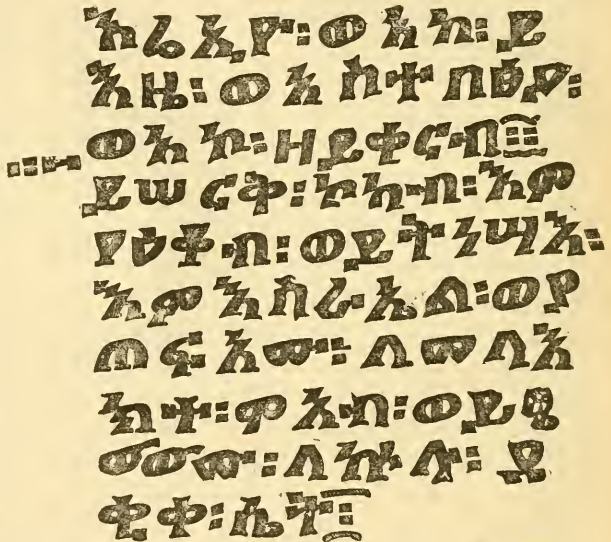 እሬእዮ፡ወአኮ፡ይ
እዜ፡ወአስተበፅዖ፡
ወአኮ፡ዘይቀርብ።
ይሠርቅ፡ኮከብ፡እም
ያዕቆብ፡ወይትነሣእ፡
እምእስራኤል፡ወያ
ጠፍኦሙ፡ለመላእ
ክተ፡ሞአብ፡ወይፄ
ውዎሙ፡ለኵሉ፡ደ
ቂቀ፡ሴት።